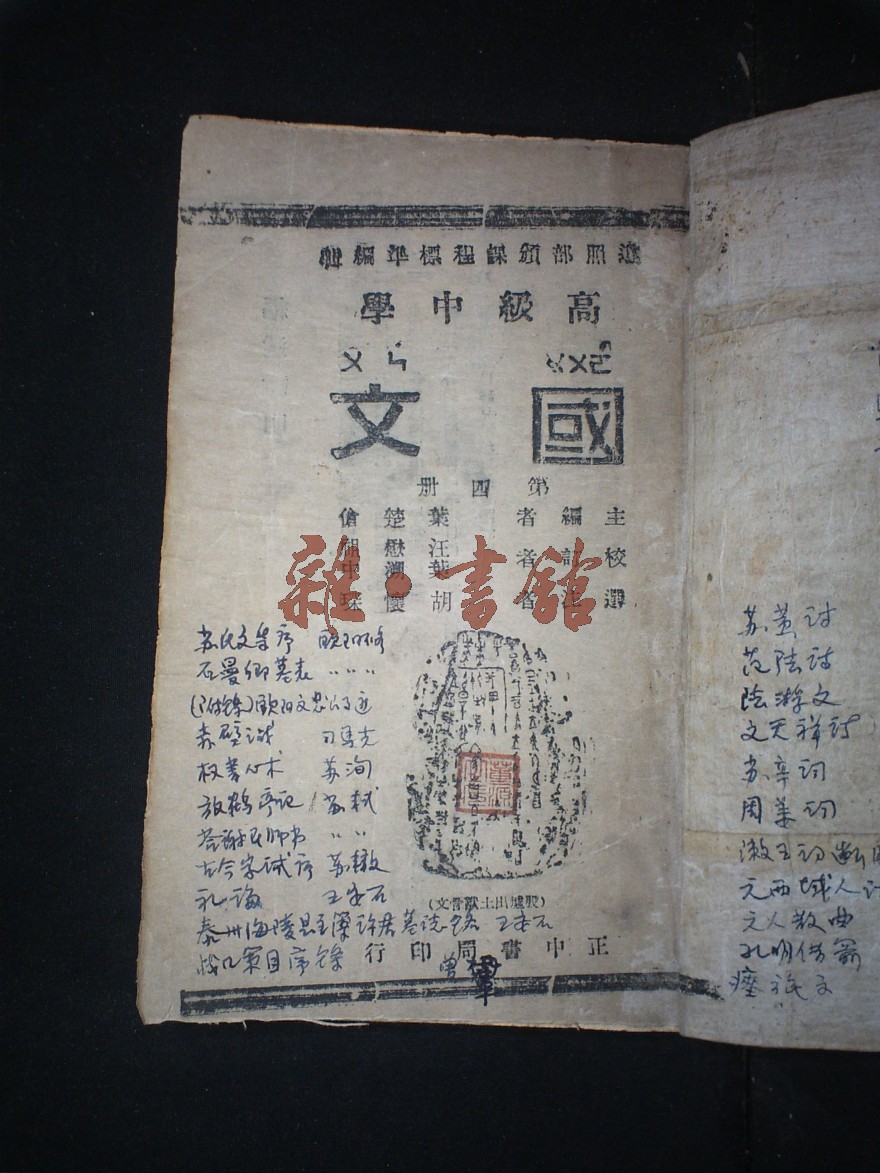 遵照部頒課程標準編輯
高級中學
ㄍㄨㄛ ㄨㄣ
國文
第四冊
主編者 葉楚傖
校訂者 汪懋祖 葉溯中
選注者 胡懷琛
雜·書館
苏氏文集序 欧阳修
石曼卿墓表 〃〃〃
(附錄)欧阳文忠公事迹
赤壁之战 司马光
权书心术 苏洵
放鹤亭记 苏轼
答谢民师书 〃〃
古今家诫序 苏辙
礼论 王安石
泰州海陵县主簿许君墓志铭 王安石
战国策目序錄
(殷墟出土獸骨文)
正中書局印行
曾
苏黄诗
范陆诗
陆游文
文天祥诗
苏辛词
周姜词
元西域人
元人散曲
孔明借箭
瘗旅文